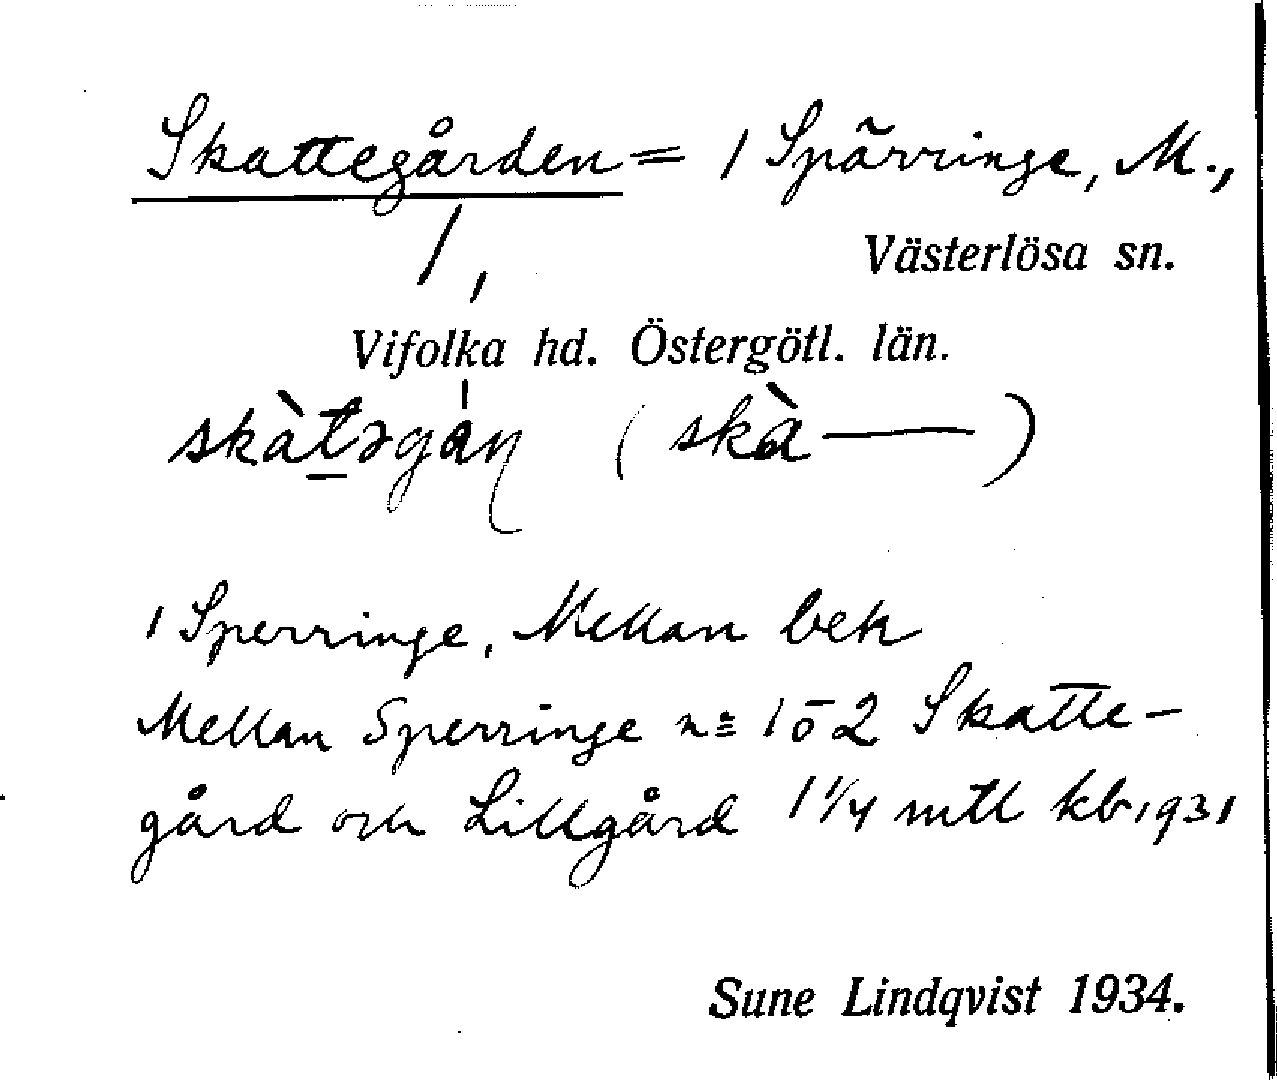 Skattegården = 1 Spärringe, M.,
1,
Västerlösa sn.
Vifolka hd. Östergötl. län.
skàt̠əgán (skà—)
1 Sperringe, Mellan bek
Mellan Sperringe n:s 1 o 2 Skatte-
gård och Lillgård 1 1/4 mtl kb 1931
Sune Lindqvist 1934.